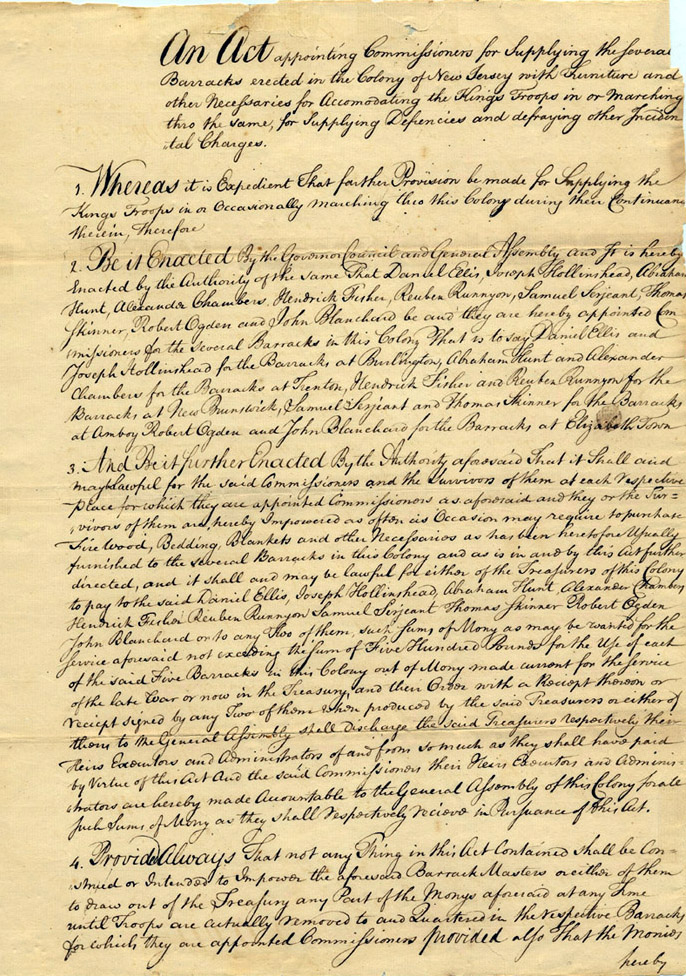 An Act appointing Commissioners for Supplying the several
Barracks erected in the Colony of New Jersey with Furniture and
other Necessaries for Accomodating the Kings Troops in or marching
thro the same, for Supplying Defiencies and defraying other Inciden
tal Charges.
1. Whereas it is Expedient That farther Provision be made for Supplying the
Kings Troops in or Occasionally marching thro this Colony during their Continuanc
therein, Therefore
2. Be it Enacted By the Governor Council and General Assembly and It is hereby
Enacted by the Authority of the same That Daniel Ellis, Joseph Hollinshead, Abraham
Hunt, Alexander Chambers, Hendrick Fisher, Reuben Runnyon, Samuel Serjeant, Thomas
Skinner, Robert Ogden and John Blanchard be and they are hereby appointed Com
missioners for the several Barracks in this Colony That is to say Daniel Ellis and
Joseph Hollinshead for the Barracks at Burlington, Abraham Hunt and Alexander
Chambers for the Barracks at Trenton, Hendrick Fisher and Reuben Runnyon for the
Barracks at New Brunswick, Samuel Serjeant and Thomas Skinner for the Barracks
at Amboy Robert Ogden and John Blanchard for the Barracks at Elizabeth Town
3. And Be it further Enacted By the Authority aforesaid That it Shall and
may be Lawful for the said Commissioners and the Survivors of them at each respective
Place for which they are appointed Commissioners as aforesaid and they or the Sur-
vivors of them are hereby Impowered as often as Occasion may require to purchase
Fire Wood, Bedding, Blankets and other Necessarios as has been heretofore Usually
furnished to the several Barracks in this Colony and as is in and by this Act further
directed, and it shall and may be lawful for either of the Treasurers of this Colony
to pay to the said Daniel Ellis, Joseph Hollinshead, Abraham Hunt, Alexander Chambers
Hendrick Fisher Reuben Runnyon Samuel Serjeant Thomas Skinner Robert Ogden
John Blanchard or to any Two of them, such Sums of Mony as may be wanted for the
Service aforesaid not exceeding the Sum of Five Hundred Pounds for the Use of each
of the said Five Barracks in this Colony out of Mony made current for the Service
of the late War or now in the Treasury, and their Order with a Reciept thereon or
reciept signed by any Two of them when produced by the said Treasurers or either of
them to the General Assembly shall Discharge the said Treasurers respectively their
Heirs Executors and Administrators of and from so much as they shall have paid
by Virtue of this Act And the said Commissioners their Heirs Executors and Adminis-
strators are hereby made Accountable to the General Assembly of this Colony for all
such Sums of Mony as they shall respectively recieve in Pursuance of this Act.
4. Provided Always That not any Thing in this Act Contained shall be Con-
strued or Intended to Impower the aforesaid Barrack Masters or either of them
to draw out of the Treasury any Part of the Monys aforesaid at any Time
until Troops are actually removed to and Quartered in the respective Barracks
for which they are appointed Commissioners provided also That the Monies
hereby